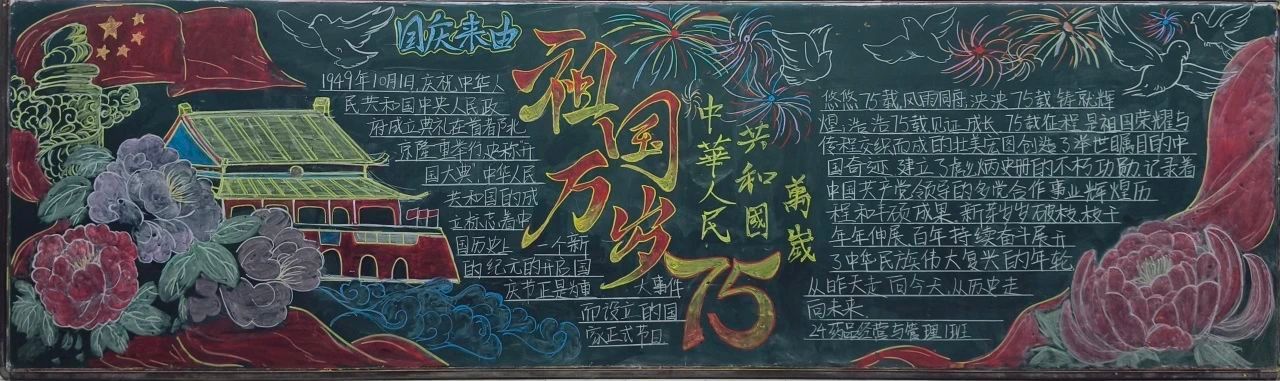 国庆来由
1949年10月1日,庆祝中华人
民共和国中央人民政
府成立典礼在首都北
京隆重举行,史称开
国大典,中华人民
共和国的成
立标志着中
国历史上一个新
的纪元的开启国
庆节正是为重一大事件
而设立的国
家正式节日
祖国万岁
75
中華人民
共和國
萬歲
悠悠75载,风雨同舟,泱泱75载铸就辉
煌,浩浩75载见证成长,75载征程是祖国荣耀与
传程交织而成的壮美宏图创造了举世瞩目的中
国奇迹,建立了彪炳史册的不朽功勋,记录着
中国共产党领导的多党合作事业辉煌历
程和丰硕成果,新芽岁岁破枝,枝干
年年伸展,百年持续奋斗展开
了中华民族伟大复兴的年轮
从昨天走向今天,从历史走
向未来.
24药品经营与管理1班